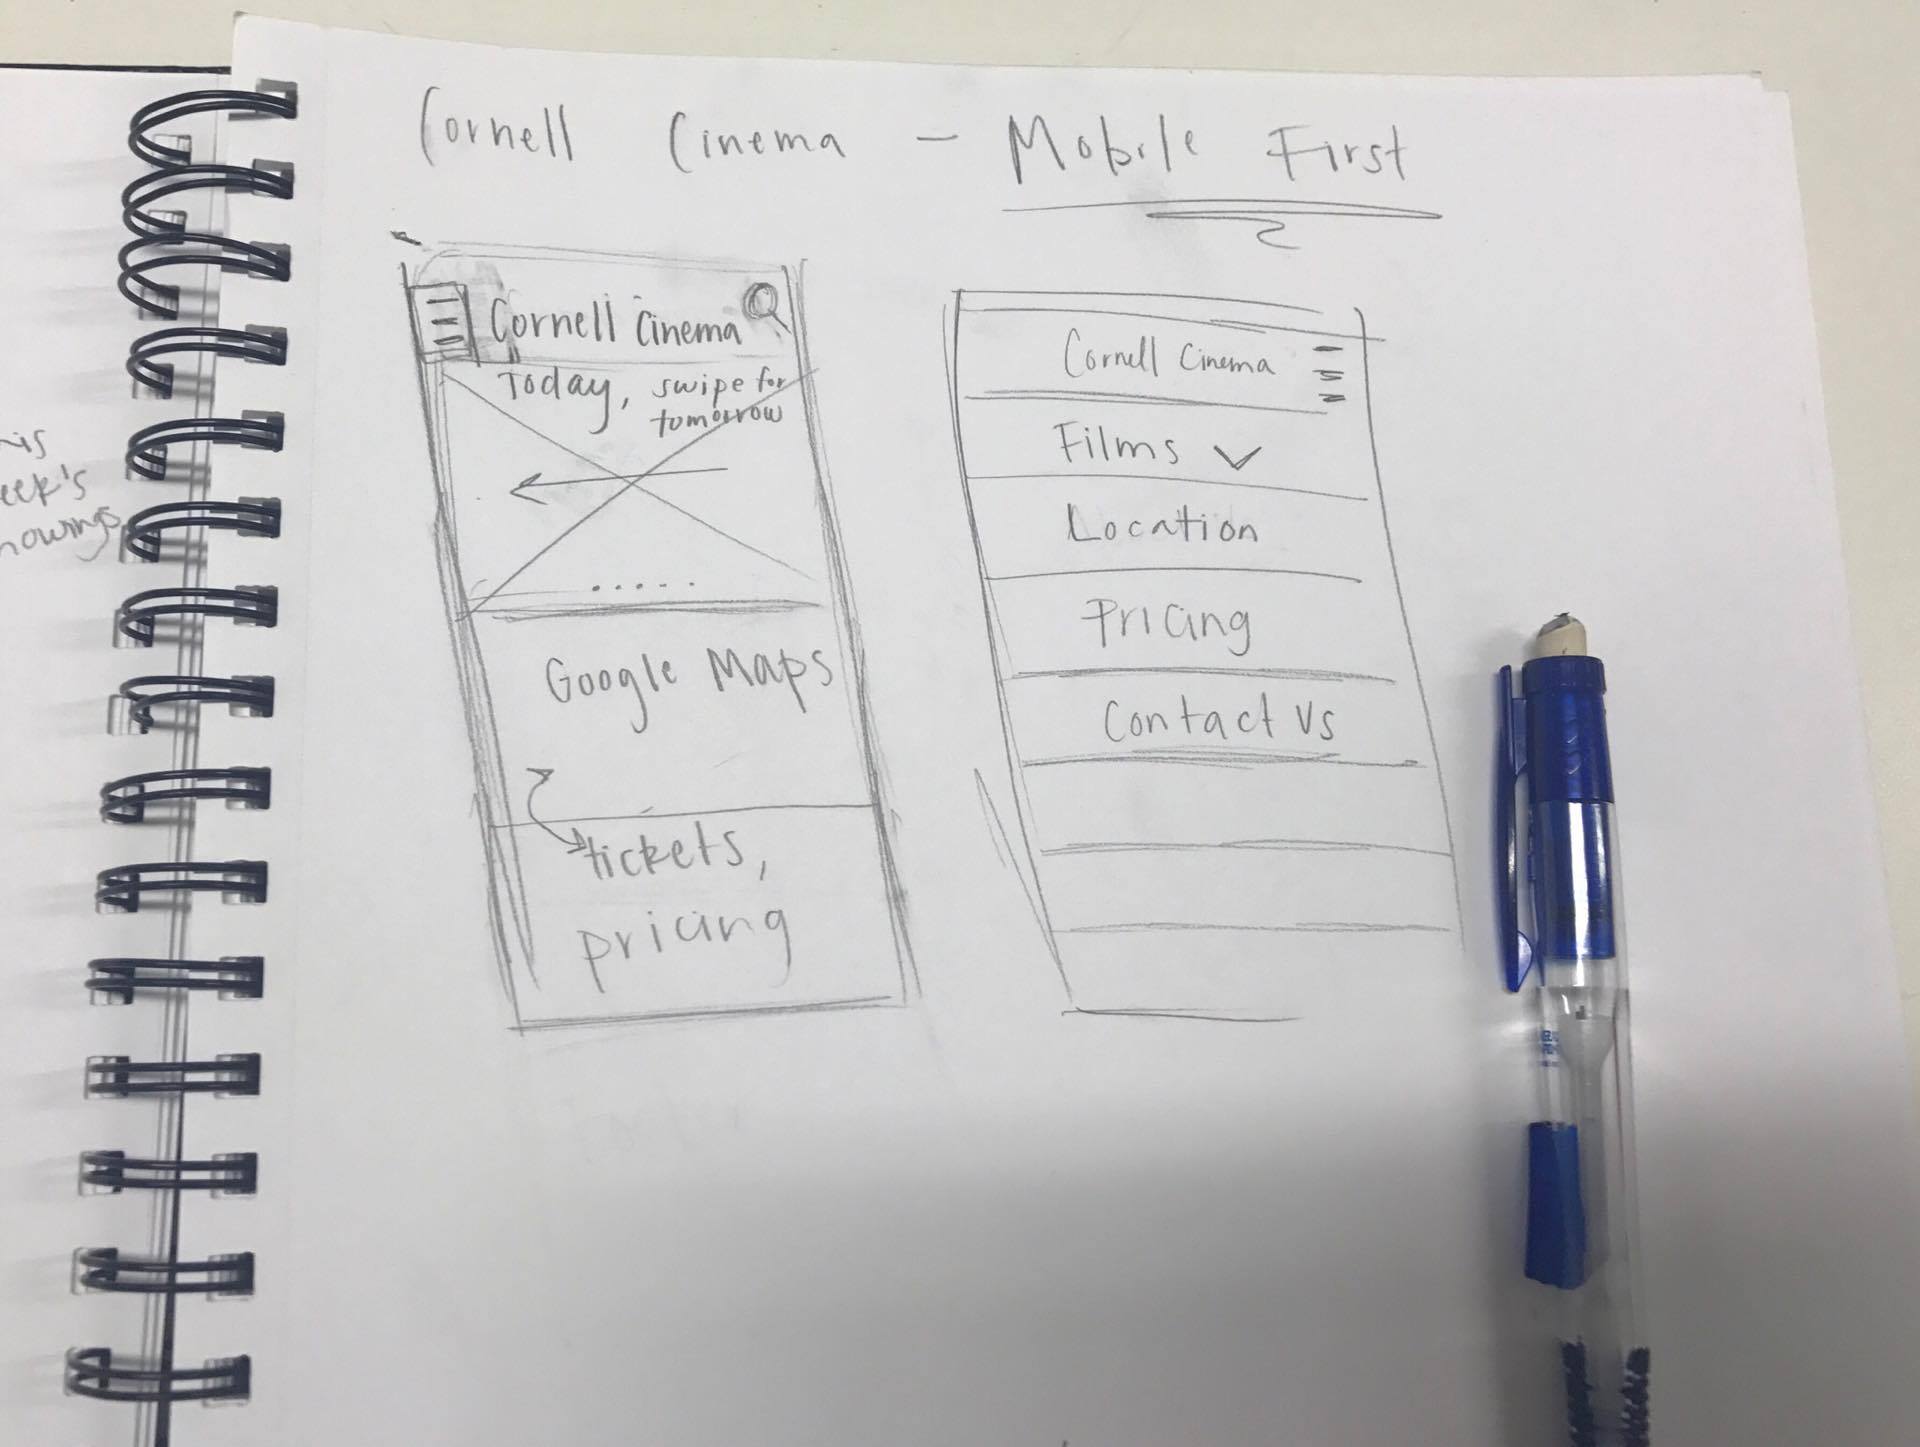 Cornell Cinema - Mobile First
Cornell Cinema
Today, swipe for
tomorrow
Google Maps
tickets,
pricing
Cornell Cinema
Films
Location
Pricing
Contact Us